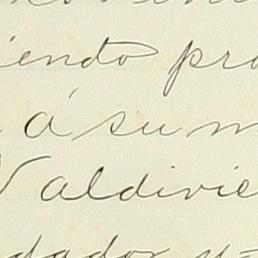 iendo pro
á su m
Valdivie
dador y